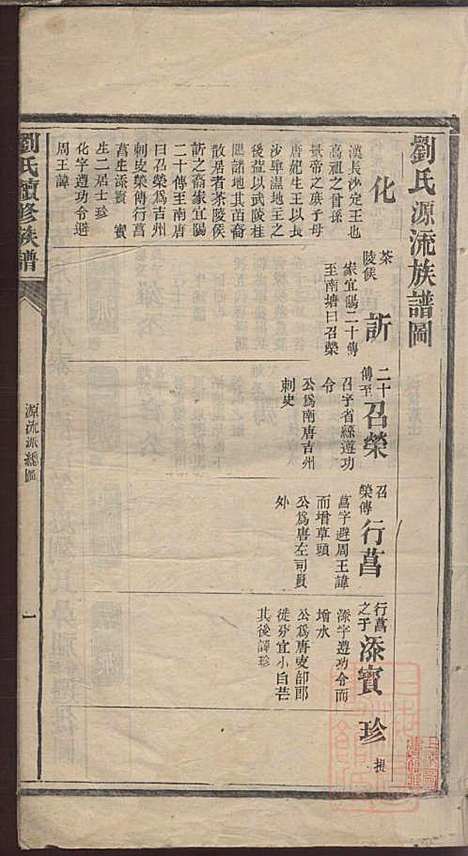 劉氏源流族譜圖
化
漢長沙定王也
高祖之曾孫
景帝之庶子母
唐妃生王以長
沙卑濕地王之
後益以武陵桂
陽諸地其苗裔
散居者茶陵侯
訢之裔家宜陽
二十傳至南唐
曰召榮爲吉州
刺史榮傳行菖
菖生添賓 賓
生二居士珍
化字遵功令避
周王諱
茶陵侯
訢
家宜陽二十傳
至南塘曰召榮
二十傳至
召榮
召字省絲遵功
令
公爲南唐吉州
刺史
召榮傳
行菖
菖字避周王諱
而增草頭
公爲唐左司員
外
行菖之子
添賓
添字遵功令而
增水
公爲唐吏部郎
徙分宜小自芒
其後譯珍
珍
劉氏續修族譜
源流派總圖
一